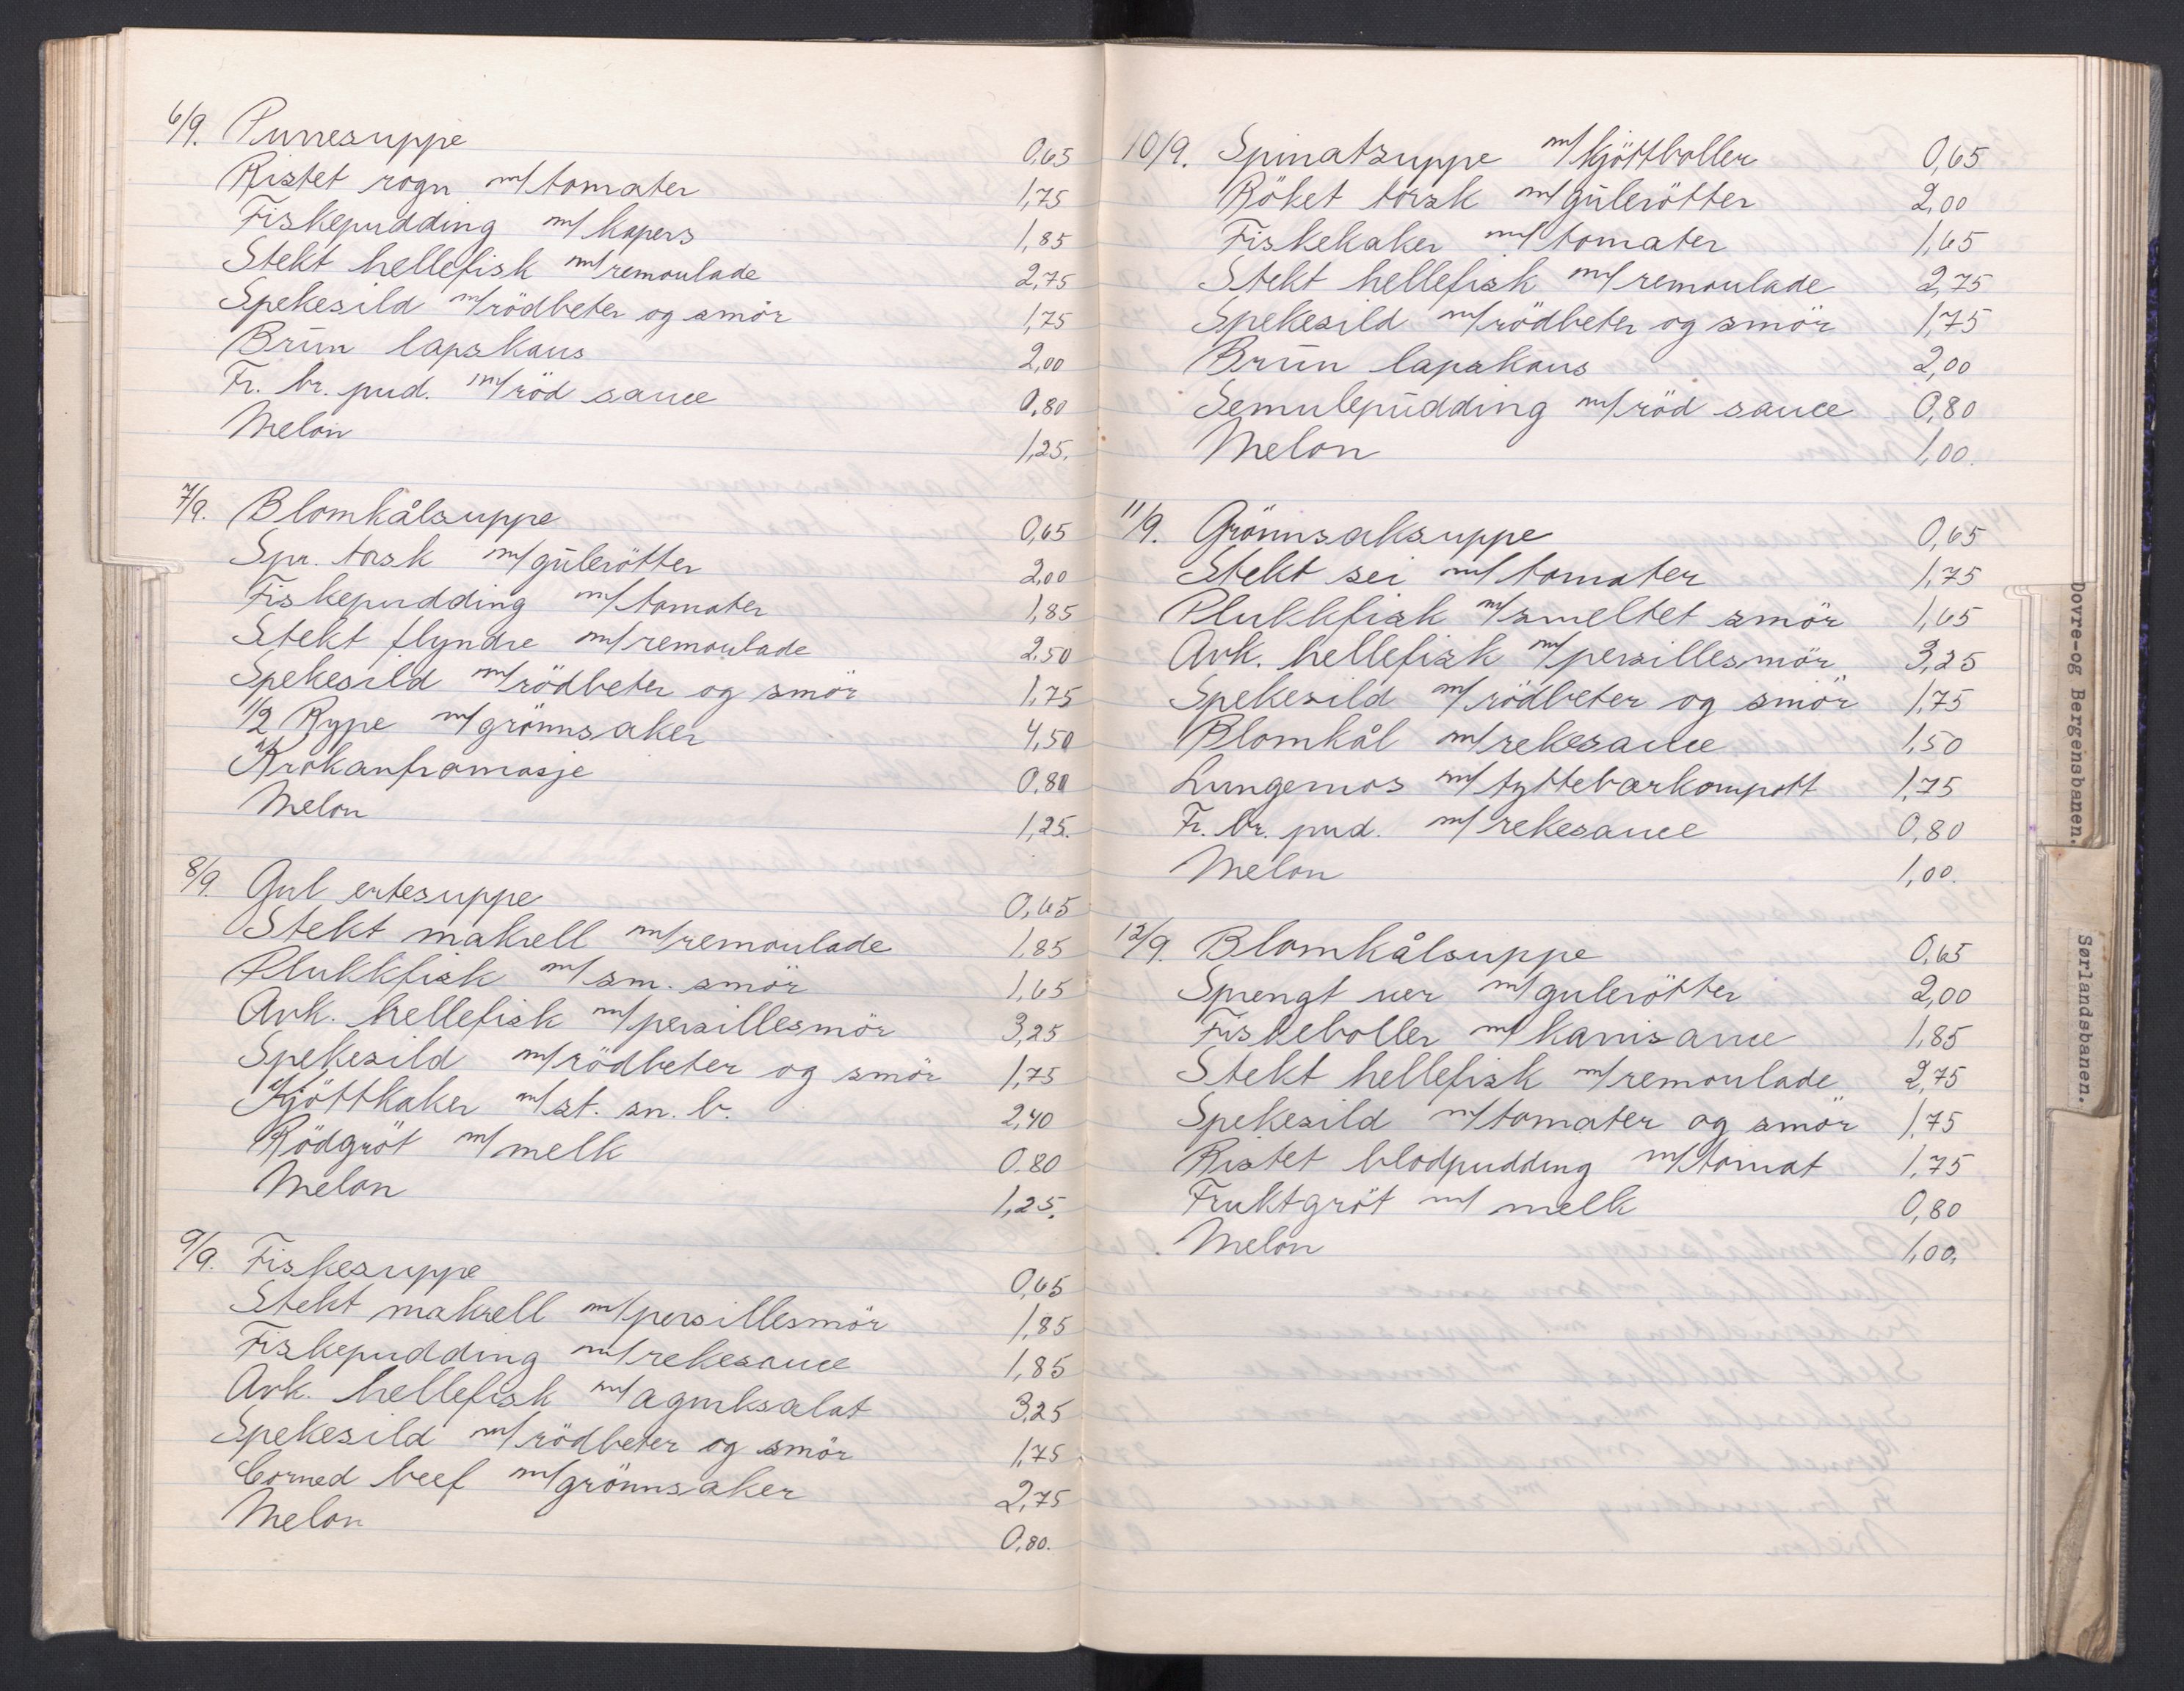 6/9. Purresuppe 0,65
Ristet rogn m/tomater 1,75
Fiskepudding m/kapers 1,85
Stekt hellefisk m/remoulade 2,75
Spekesild m/rödbeter og smör 1,75
Brun lapskaus 2,00
Fr. br. pud. m/röd sauce 0,80
Melon 1,25.
7/9. Blomkålsuppe 0,65
Spr. torsk m/gulerötter 2,00
Fiskepudding m/tomater 1,85
Stekt flyndre m/remoulade 2,50
Spekesild m/rödbeter og smör 1,75
1/2 Rype m/grönnsaker 4,50
Krokanfromasje 0,80
Melon 1,25.
8/9. Gul ertesuppe 0,65
Stekt makrell m/remoulade 1,85
Plukkfisk m/sm. smör 1,65
Avk. hellefisk m/persillesmör 3,25
Spekesild m/rödbeter og smör 1,75
Kjöttkaker m/st. sn. b. 2,40
Rödgröt m/melk 0.80
Melon 1,25.
9/9. Fiskesuppe 0,65
Stekt makrell m/persillesmör 1,85
Fiskepudding m/rekesauce 1,85
Avk. hellefisk m/agurksalat 3,25
Spekesild m/rödbeter og smör 1,75
Corned beef m/grönnsaker 2,75
Melon 0,80.
10/9. Spinatsuppe m/kjöttboller 0,65
Röket torsk m/gulerötter 2,00
Fiskekaker m/tomater 1,65
Stekt hellefisk m/remoulade 2,75
Spekesild m/rödbeter og smör 1,75
Brun lapskaus 2,00
Semulepudding m/röd sauce 0,80
Melon 1,00.
11/9. Grönnsaksuppe 0,65
Stekt sei m/tomater 1,75
Plukkfisk m/smeltet smör 1,65
Avk. hellefisk m/persillesmör 3,25
Spekesild m/rödbeter og smör 1,75
Blomkål m/rekesauce 1,50
Lungemos m/tyttebærkompott 1,75
Fr. br. pud. m/rekesauce 0,80
Melon 1,00.
12/9. Blomkålsuppe 0,65
Sprengt uer m/gulerötter 2,00
Fiskeboller m/karrisauce 1,85
Stekt hellefisk m/remoulade 2,75
Spekesild m/tomater og smör 1,75
Ristet blodpudding m/tomat 1,75
Fruktgröt m/ melk 0,80
Melon 1,00.
Dovre-og Bergensbanen.
Sørlandsbanen.